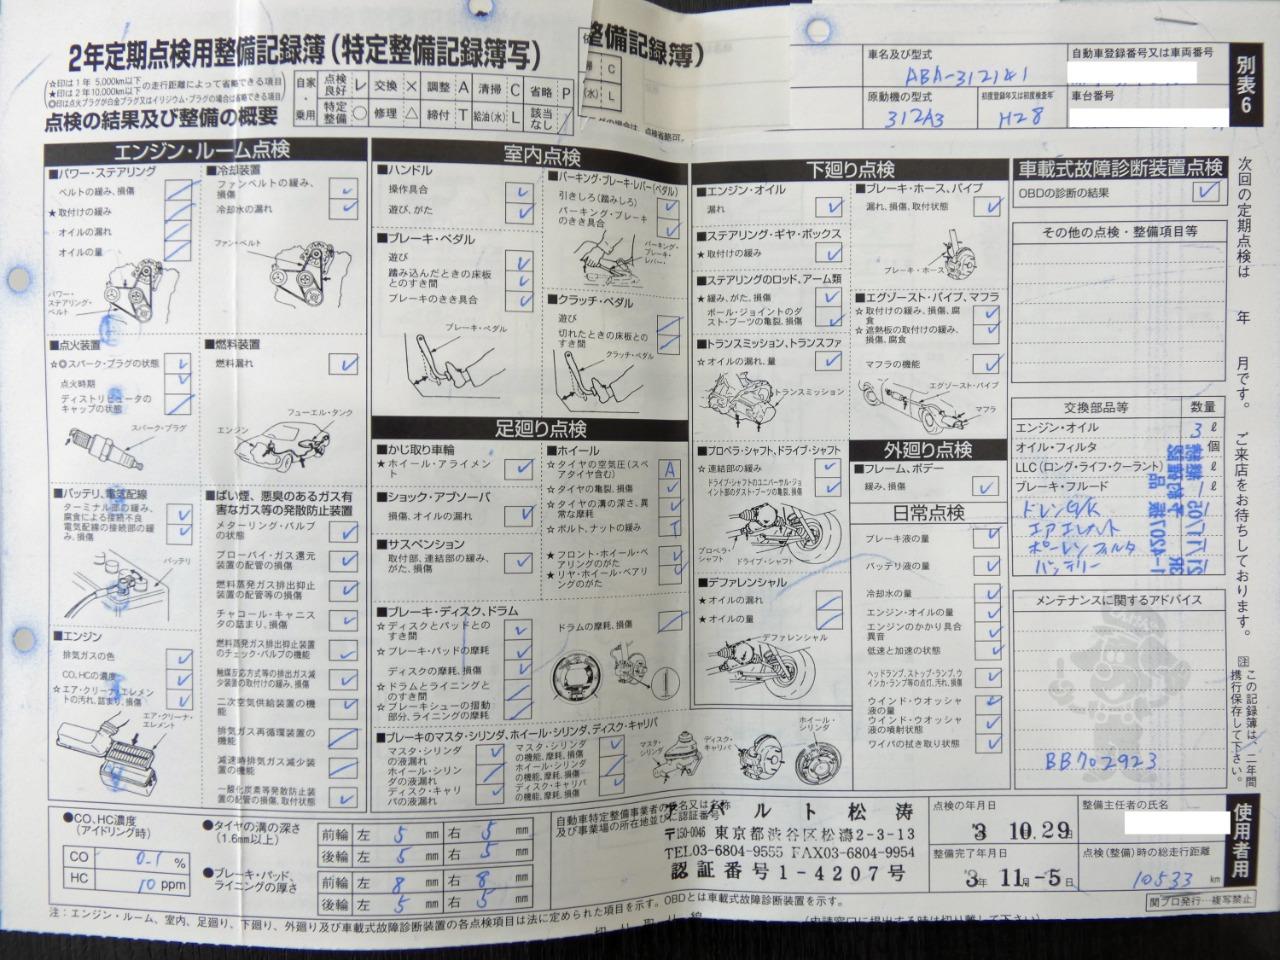 2年定期点検用整備記録簿(特定整備記録簿写)
整備記録簿)
☆印は1年 5,000km以下
★印は2年10,000km以下
の走行距離によって省略できる項目
◎印は点火プラグが白金プラグ又はイリジウム・プラグの場合は省略できる項目
点検の結果及び整備の概要
自家・乗用
点検良好 レ 交換 × 調整 A 清掃 C 省略 P
特定整備 ○ 修理 △ 締付 T 給油(水) L 該当なし /
車名及び型式
ABA-312141
自動車登録番号又は車両番号
原動機の型式
312A3
初度登録年又は初度検査年
H28
車台番号
別表6
エンジン・ルーム点検
■パワー・ステアリング
ベルトの緩み、損傷
★取付けの緩み
オイルの漏れ
オイルの量
パワー・ステアリング・ベルト
■冷却装置
ファンベルトの緩み、損傷
冷却水の漏れ
ファン・ベルト
■点火装置
☆◎スパーク・プラグの状態
点火時期
ディストリビュータのキャップの状態
スパーク・プラグ
■燃料装置
燃料漏れ
フューエル・タンク
エンジン
■バッテリ、電気配線
ターミナル部の緩み、腐食による接続不良
電気配線の接続部の緩み、損傷
バッテリ
■エンジン
排気ガスの色
CO、HCの濃度
☆エア・クリーナ・エレメントの汚れ、詰まり、損傷
エア・クリーナ・エレメント
■ばい煙、悪臭のあるガス有害なガス等の発散防止装置
メターリング・バルブの状態
ブローバイ・ガス還元装置の配管の損傷
燃料蒸発ガス排出抑止装置の配管等の損傷
チャコール・キャニスタの詰まり、損傷
燃料蒸発ガス排出抑止装置のチェック・バルブの機能
触媒反応方式等の排出ガス減少装置の取付けの緩み、損傷
二次空気供給装置の機能
排気ガス再循環装置の機能
減速時排気ガス減少装置の機能
一酸化炭素等発散防止装置の配管の損傷、取付状態
室内点検
■ハンドル
操作具合
遊び、がた
■ブレーキ・ペダル
遊び
踏み込んだときの床板とのすき間
ブレーキのきき具合
ブレーキ・ペダル
■パーキング・ブレーキ・レバー(ペダル)
引きしろ(踏みしろ)
パーキング・ブレーキのきき具合
パーキング・ブレーキ・レバー
■クラッチ・ペダル
遊び
切れたときの床板とのすき間
クラッチ・ペダル
足廻り点検
■かじ取り車輪
★ホイール・アライメント
■ショック・アブソーバ
損傷、オイルの漏れ
■サスペンション
取付部、連結部の緩み、がた、損傷
■ホイール
☆タイヤの空気圧(スペアタイヤ含む) A
☆タイヤの亀裂、損傷
☆タイヤの溝の深さ、異常な摩耗
☆ボルト、ナットの緩み T
★フロント・ホイール・ベアリングのがた
★リヤ・ホイール・ベアリングのがた
■ブレーキ・ディスク、ドラム
☆ディスクとパッドとのすき間
☆ブレーキ・パッドの摩耗
ディスクの摩耗、損傷
☆ドラムとライニングとのすき間
☆ブレーキシューの摺動部分、ライニングの摩耗
ドラムの摩耗、損傷
■ブレーキのマスタ・シリンダ、ホイール・シリンダ、ディスク・キャリパ
マスタ・シリンダの液漏れ
ホイール・シリンダの液漏れ
ディスク・キャリパの液漏れ
マスタ・シリンダの機能、摩耗、損傷
ホイール・シリンダの機能、摩耗、損傷
ディスク・キャリパの機能、摩耗、損傷
マスタ・シリンダ
ディスク・キャリパ
ホイール・シリンダ
下廻り点検
■エンジン・オイル
漏れ
■ステアリング・ギヤ・ボックス
★取付けの緩み
■ステアリングのロッド、アーム類
★緩み、がた、損傷
ボール・ジョイントのダスト・ブーツの亀裂、損傷
■トランスミッション、トランスファ
☆オイルの漏れ、量
トランスミッション
■プロペラ・シャフト、ドライブ・シャフト
☆連結部の緩み
ドライブ・シャフトのユニバーサル・ジョイント部のダスト・ブーツの亀裂、損傷
プロペラ・シャフト
ドライブ・シャフト
■デファレンシャル
★オイルの漏れ
★オイルの量
デファレンシャル
■ブレーキ・ホース、パイプ
漏れ、損傷、取付状態
ブレーキ・ホース
■エグゾースト・パイプ、マフラ
☆取付けの緩み、損傷、腐食
☆遮熱板の取付けの緩み、損傷、腐食
マフラの機能
エグゾースト・パイプ
マフラ
外廻り点検
■フレーム、ボデー
緩み、損傷
日常点検
ブレーキ液の量
バッテリ液の量
冷却水の量
エンジン・オイルの量
エンジンのかかり具合、異音
低速と加速の状態
ヘッドランプ、ストップ・ランプ、ウインカ・ランプ等の点灯、汚れ、損傷
ウインド・ウオッシャ液の量
ウインド・ウオッシャ液の噴射状態
ワイパの拭き取り状態
車載式故障診断装置点検
OBDの診断の結果
その他の点検・整備項目等
交換部品等 数量
エンジン・オイル 3 ℓ
オイル・フィルタ 個
LLC(ロング・ライフ・クーラント) ℓ
ブレーキ・フルード 1 ℓ
ドレンG/K
エアエレメント
ポーレンフィルタ
バッテリー
メンテナンスに関するアドバイス
BB702923
次回の定期点検は 年 月です。ご来店をお待ちしております。
注 この記録簿は、二年間携行保存して下さい。
使用者用
●CO、HC濃度(アイドリング時)
CO 0.1 %
HC 10 ppm
●タイヤの溝の深さ(1.6mm以上)
前輪 左 5 mm 右 5 mm
後輪 左 5 mm 右 5 mm
●ブレーキ・パッド、ライニングの厚さ
前輪 左 8 mm 右 8 mm
後輪 左 5 mm 右 5 mm
アバルト松涛
〒150-0046 東京都渋谷区松濤2-3-13
TEL03-6804-9555 FAX03-6804-9954
認証番号1-4207号
点検の年月日
3 10.29日
整備完了年月日
3年 11月-5日
整備主任者の氏名
点検(整備)時の総走行距離
10533 km
注:エンジン・ルーム、室内、足廻り、下廻り、外廻り及び車載式故障診断装置の各点検項目は法に定められた項目を示す。OBDとは車載式故障診断装置を示す。
関プロ発行…複写禁止